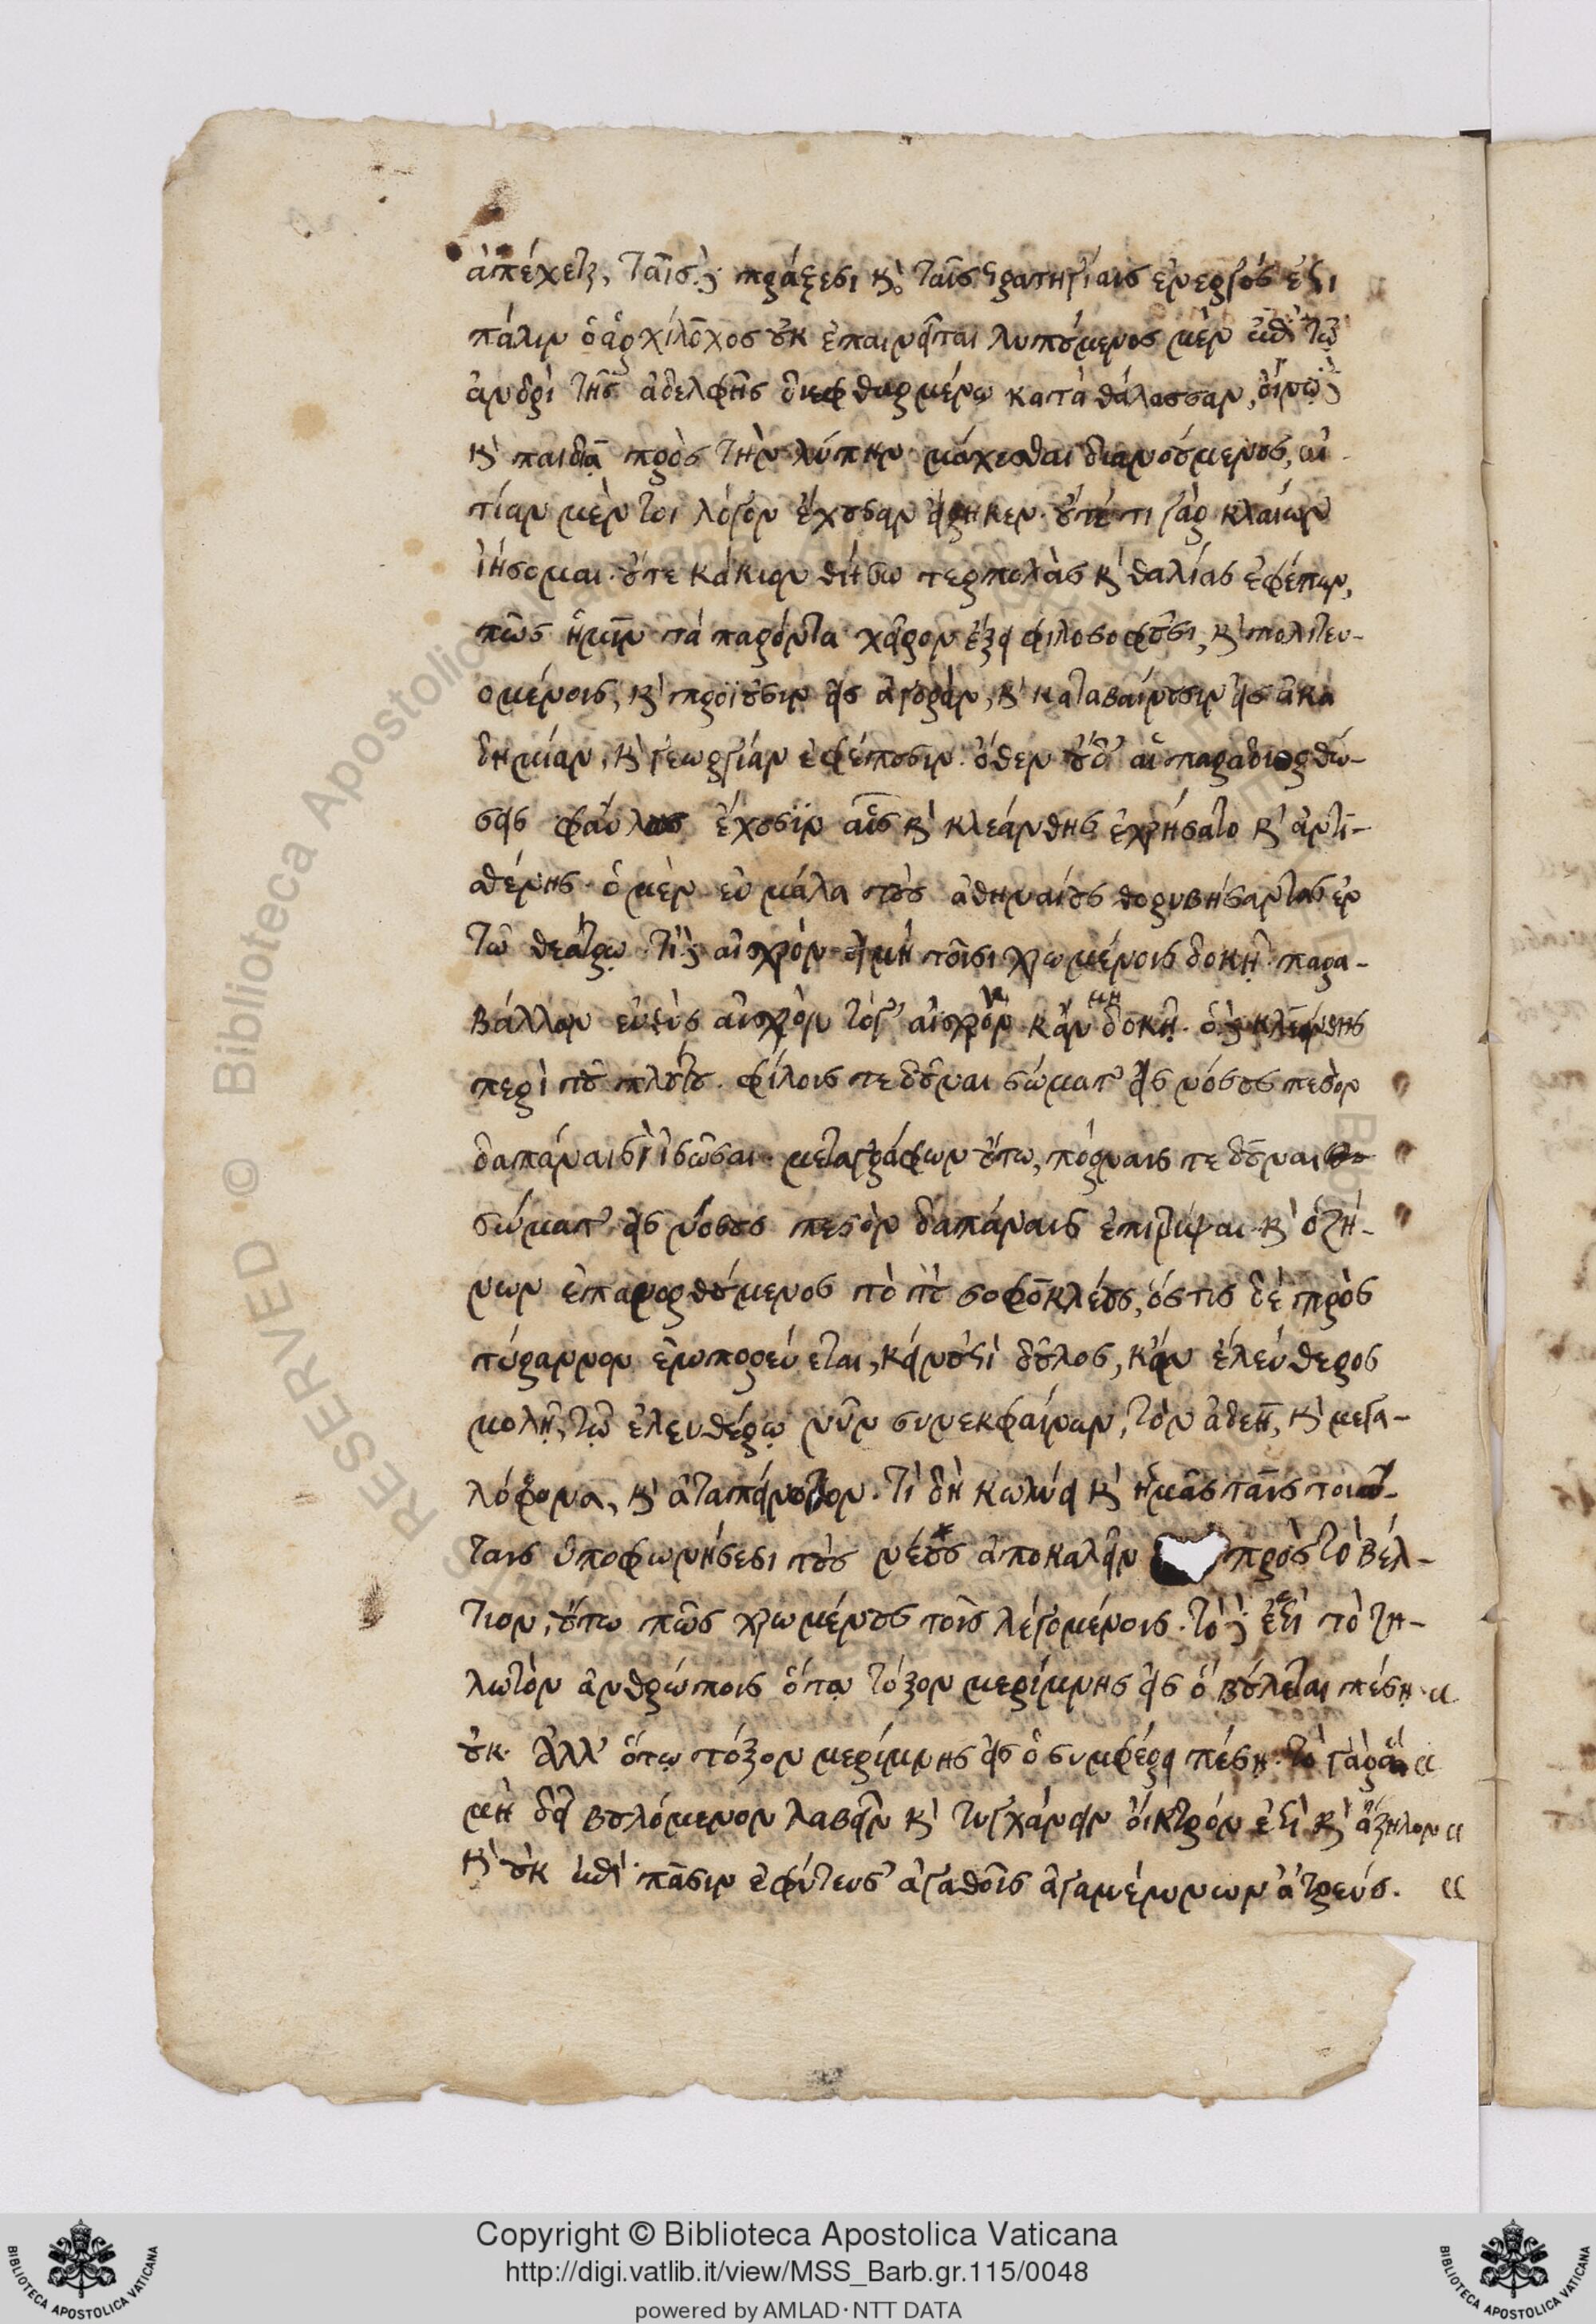 ἀπέχεται, ταῖς δὲ πράξεσι καὶ ταῖς στρατηγίαις ἐνεργός ἐστι
πάλιν ὁ ἀρχίλοχος οὐκ ἐπαινεῖται λυπούμενος μὲν ἐπὶ τῷ
ἀνδρὶ τῆς ἀδελφῆς διεφθαρμένῳ κατὰ θάλασσαν, οἴνῳ δὲ
καὶ παιδιᾷ πρὸς τὴν λύπην μάχεσθαι διανοούμενος, αἰ-
τίαν μέντοι λόγον ἔχουσαν εἴρηκεν· οὔτέ τι γὰρ κλαίων
ἰήσομαι· οὔτε κάκιον θήσω τερπολὰς καὶ θαλίας ἐφέπων,
πῶς ἡμῖν τὰ παρόντα χεῖρον ἕξει φιλοσοφοῦσι, καὶ πολιτευ-
ομένοις, καὶ προϊοῦσιν εἰς ἀγορὰν, καὶ καταβαίνουσιν εἰς ἀκα
δημίαν, καὶ γεωργίαν ἐφέπουσιν· ὅθεν οὐδ' αἱ παραδιορθώ-
σεις φαύλως ἔχουσιν αἷς καὶ κλεάνθης ἐχρήσατο καὶ ἀντι-
σθένης· ὁ μὲν εὖ μάλα τοὺς ἀθηναίους θορυβήσαντας ἐν
τῷ θεάτρῳ· τί δὲ αἰσχρὸν εἰ μὴ τοῖσι χρωμένοις δοκῇ· παρα-
βάλλων εὐθὺς αἰσχρὸν τό γ' αἰσχρὸν κἂν δοκῇ κἂν μὴ δοκῇ· ὁ δὲ κλεάνθης
περὶ τοῦ πλούτου· φίλοις τε δοῦναι σώματ' εἰς νόσους πεσὸν
δαπάναισι ἰσῶσαι· μεταγράφων οὕτω, πόρναις τε δοῦναι
σώματ' εἰς νόσους πεσὸν δαπάναις ἐπιτρίψαι· καὶ ὁ ζή-
νων ἐπανορθούμενος τὸ τοῦ σοφοκλέους, ὅστις δὲ πρὸς
τύραννον ἐμπορεύεται, κείνου ἐστὶ δοῦλος, κἂν ἐλεύθερος
μολῇ, τῷ ἐλευθέρῳ νῦν συνεκφαίνων, τὸν ἀδεῆ, καὶ μεγα-
λόφρονα, καὶ ἀταπείνωτον. τί δὴ κωλύει καὶ ἡμᾶς ταῖς τοιαύ-
ταις ὑποφωνήσεσι τοὺς νέους ἀποκαλεῖν πρὸς τὸ βέλ-
τιον, οὕτω πῶς χρωμένους τοῖς λεγομένοις. τὸ δέ ἐστι τὸ ζη-
λωτὸν ἀνθρώποις ὅτῳ τόξον μερίμνης εἰς ὃ βούλεται πέσῃ·
οὔκ· ἀλλ' ὅτῳ τόξον μερίμνης εἰς ὃ συμφέρει πέσῃ· τὸ γὰρ ἃ
μὴ δεῖ βουλόμενον λαβεῖν καὶ τυγχάνειν οἰκτρόν ἐστὶ καὶ ἄζηλον
καὶ οὐκ ἐπὶ πᾶσιν ἐφύτευσ' ἀγαθοῖς ἀγαμέμνων ἀτρεύς.